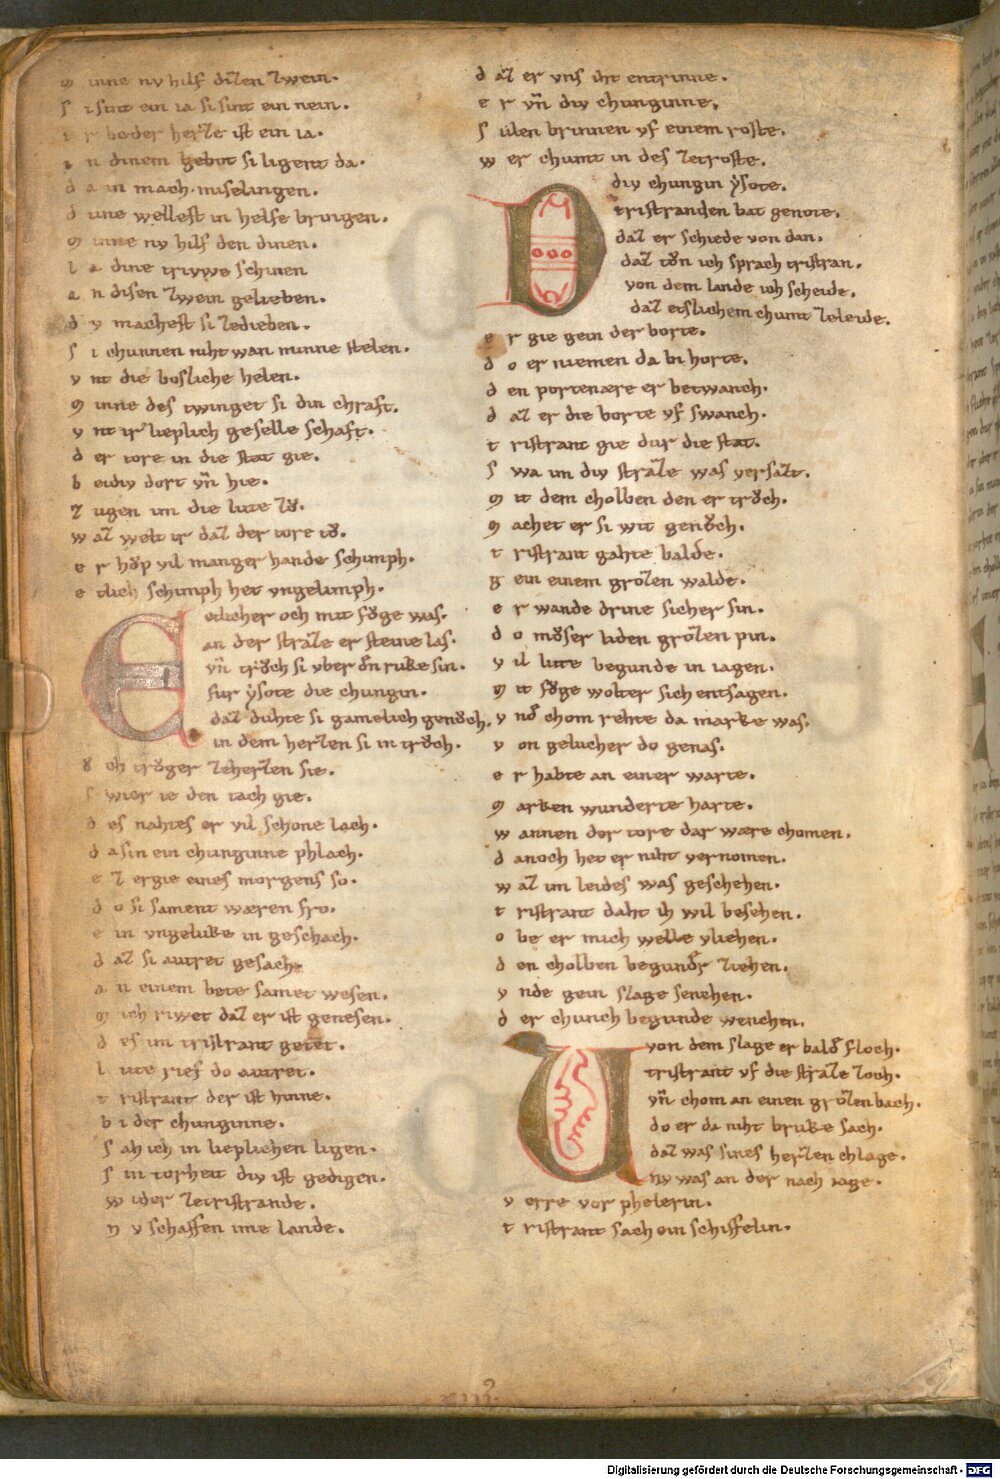 M inne nv hilf disen zwein.
S i sint ein ia si sint ein nein.
i r beder herze ist ein ia.
i n dinem gebot si ligent da.
d a in mach. miselingen.
d une wellest in helfe bringen.
M inne nv hilf den dinen.
l a dine triywe schinen
a n disen zwein gelieben.
d v machest si zedieben.
S i chunnen niht wan minne stelen.
v nt die bosliche helen.
M inne des twinget si din chraft.
v nt ir lieplich geselle schaft.
d er tore in die stat gie.
b eidiv dort vn̄ hie.
z ugen im die lute zů.
w az welt ir daz der tore tů.
e r hůp vil manger hande schimph.
e tlich schimph het vngelimph.
E etlicher och mit fůge was.
an der straze er steine las.
vn̄ trůch si vber ôn ruke sin.
fur ẏsote die chungin.
daz duhte si gamelich genůch.
in dem herzen si in trůch.
ǒ ch trůger zeherzen sie.
s wier ie den tach gie.
d es nahtes er vil schone lach.
d a sin ein chunginne phlach.
e z ergie eines morgens so.
d o si sament wæren fro.
e in vngeluke in geschach.
d az si autret gesach.
a n einem bete samet wesen.
M ich riwet daz er ist genesen.
d es im tristrant getet.
l ute rief do autret.
t ristrant der ist hinne.
b i der chunginne.
S ah ich in lieplichen ligen.
S in torheit div ist gedigen.
w ider zetristrande.
n v schaffen ime lande.
d az er vns iht entrinne.
e r vn̄ div chunginne.
S ulen brinnen vf einem roste.
w er chumt in des zetroste.
D div chungin ẏsote.
tristranden bat genote.
daz er schiede von dan.
daz tǒn ich sprach tristran.
von dem lande ich scheide.
daz etslichem chumt zeleide.
e r gie gein der borte.
d o er niemen da bi horte.
d en portenære er betwanch.
d az er die borte vf swanch.
t ristrant gie dur die stat.
S wa im div straze was versazt.
M it dem cholben den er trůch.
M achet er si wit genůch.
t ristrant gahte balde.
g ein einem grozen walde.
e r wande drine sicher sin.
d o můser liden grozen pin.
v il lute begunde in iagen.
M it fůge wolter sich entsagen.
v nð chom rehte da marke was.
v on gelucher do genas.
e r habte an einer warte.
M arken wunderte harte.
w annen der tore dar wære chomen.
d anoch het er niht vernomen.
w az im leides was geschehen.
t ristrant daht ih wil besehen.
o be er mich welle vliehen.
d en cholben begunðr ziehen.
v nde gein slage senchen.
d er chunich begunde wenchen.
V von dem slage er balð floch.
tristrant vf die straze zoch.
vn̄ chom an einen grozen bach.
do er da niht bruke sach.
daz was sines herzen chlage.
nv was an der nach iage.
v erre vor phelerin.
t ristrant sach ein schiffelin.
Digitalisierung gefördert durch die Deutsche Forschungsgemeinschaft - DFG